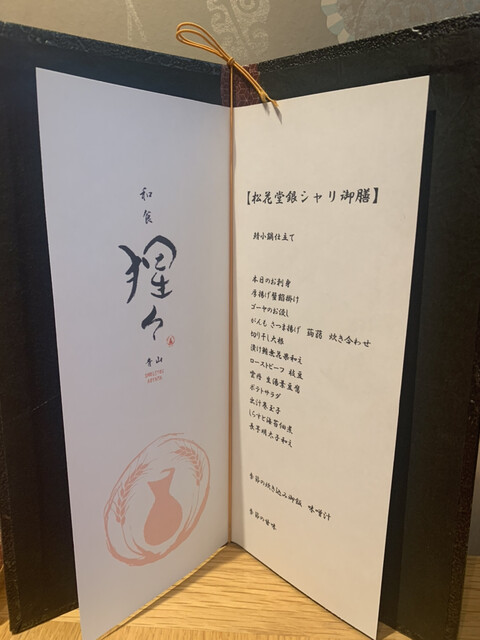 和食
猩々
青山
【松花堂銀シャリ御膳】
小鍋仕立て
本日のお刺身
厚揚げ蟹餡掛け
ゴーヤのお浸し
がんも さつま揚げ 蒟蒻 炊き合わせ
切り干し大根
漬け鮪
ローストビーフ 枝豆
雲丹 生湯葉豆腐
ポテトサラダ
出汁巻玉子
しらすと海苔佃煮
長芋明太子和え
季節の炊き込み御飯 味噌汁
季節の甘味